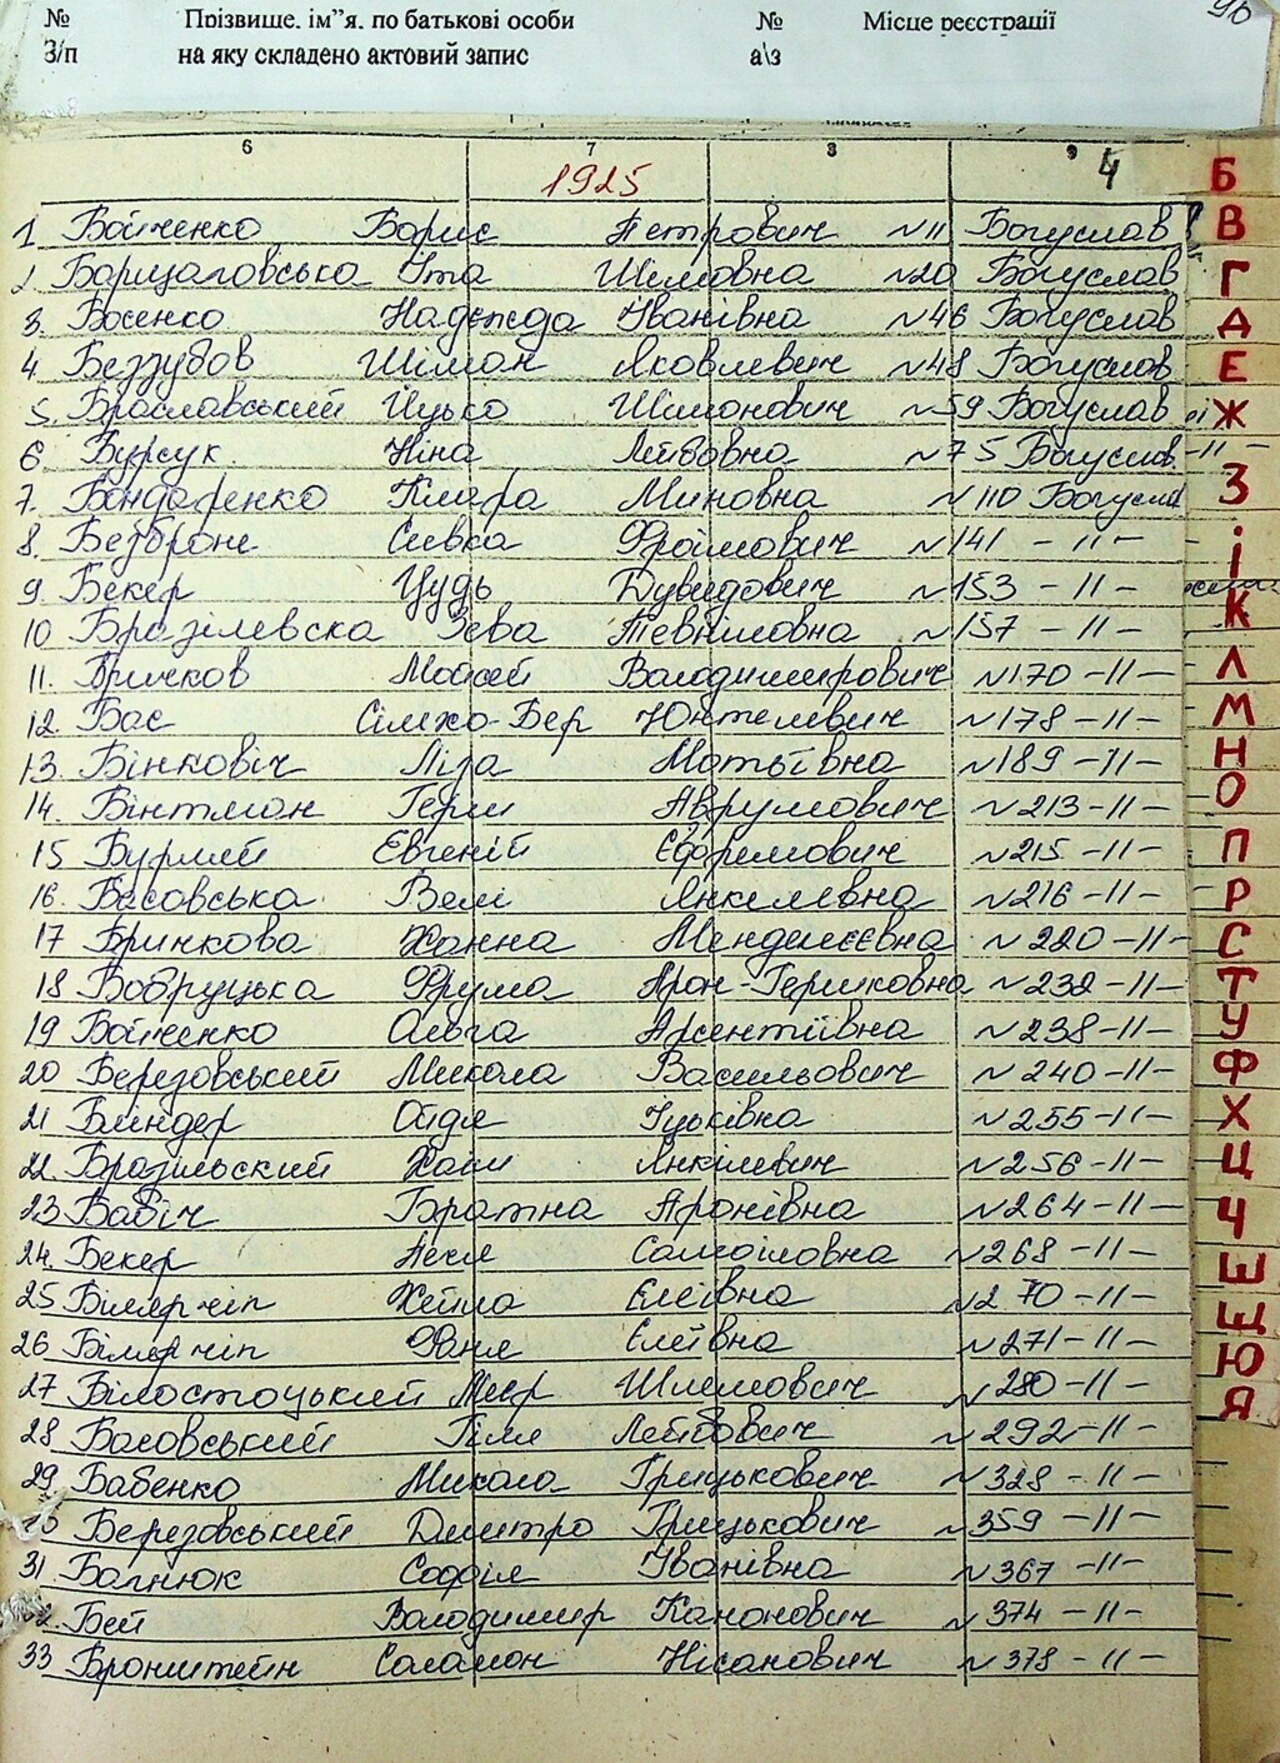 № Прізвище. ім"я. по батькові особи № Місце реєстрації
З/п на яку складено актовий запис а\з
6 7 8 9 4
1925
1 Бойченко Борис Петрович №11 Богуслав
2. Барщаговська Ита Шимовна №20 Богуслав
3. Босенко Надежда Іванівна №46 Богуслав
4. Беззубов Шимон Яковлевич №48 Богуслав
5. Браславський Ицько Шимонович №59 Богуслав
6. Бурсук Ніна Лейбовна №75 Богуслав
7. Бондаренко Клара Миновна №110 Богуслав
8. Сивка Фроїмович №141 -11-
9. Бекер Цудь Дувидович №153 -11-
10 Бразілевска Зева №157 -11-
11. Бричков Мойсей Володимирович №170 -11-
12. Бас Сімхо-Бер Юнтелевич №178 -11-
13. Бінковіч Ліза Матвіївна №189 -11-
14. Бінтман Герш Аврумович №213 -11-
15 Бурлий Євгеній Єфремович №215 -11-
16. Басовська Велі Янкелевна №216 -11-
17 Бричкова Ханна №220 -11-
18 Бобруцька Фрума Арон-Гершковна №232 -11-
19 Бойченко Ольга Арсентіївна №238 -11-
20 Березовський Микола Васильович №240 -11-
21 Бліндер Ойдя Іцьківна №255 -11-
22. Бразильский Хаім Янкілевич №256 -11-
23 Бабіч Братна Аронівна №264 -11-
24. Бекер Песя Самоіловна №268 -11-
25 Білярчіп Хейла Елеівна №270 -11-
26 Білярчіп Фаня Єлеївна №271 -11-
27 Білостоцький Меєр Шлемович №280 -11-
28 Басовський Гіля Лейбович №292 -11-
29. Бабенко Микола Грицькович №328 -11-
30 Березовський Дмитро Грицькович №359 -11-
31 Багнюк Софія Іванівна №367 -11-
32. Бей Володимир Кананович №374 -11-
33 Бронштейн Саламон Нісанович №378 -11-
Б
В
Г
Д
Е
Ж
З
і
К
Л
М
Н
О
П
Р
С
Т
У
Ф
Х
Ц
Ч
Ш
Щ
Ю
Я